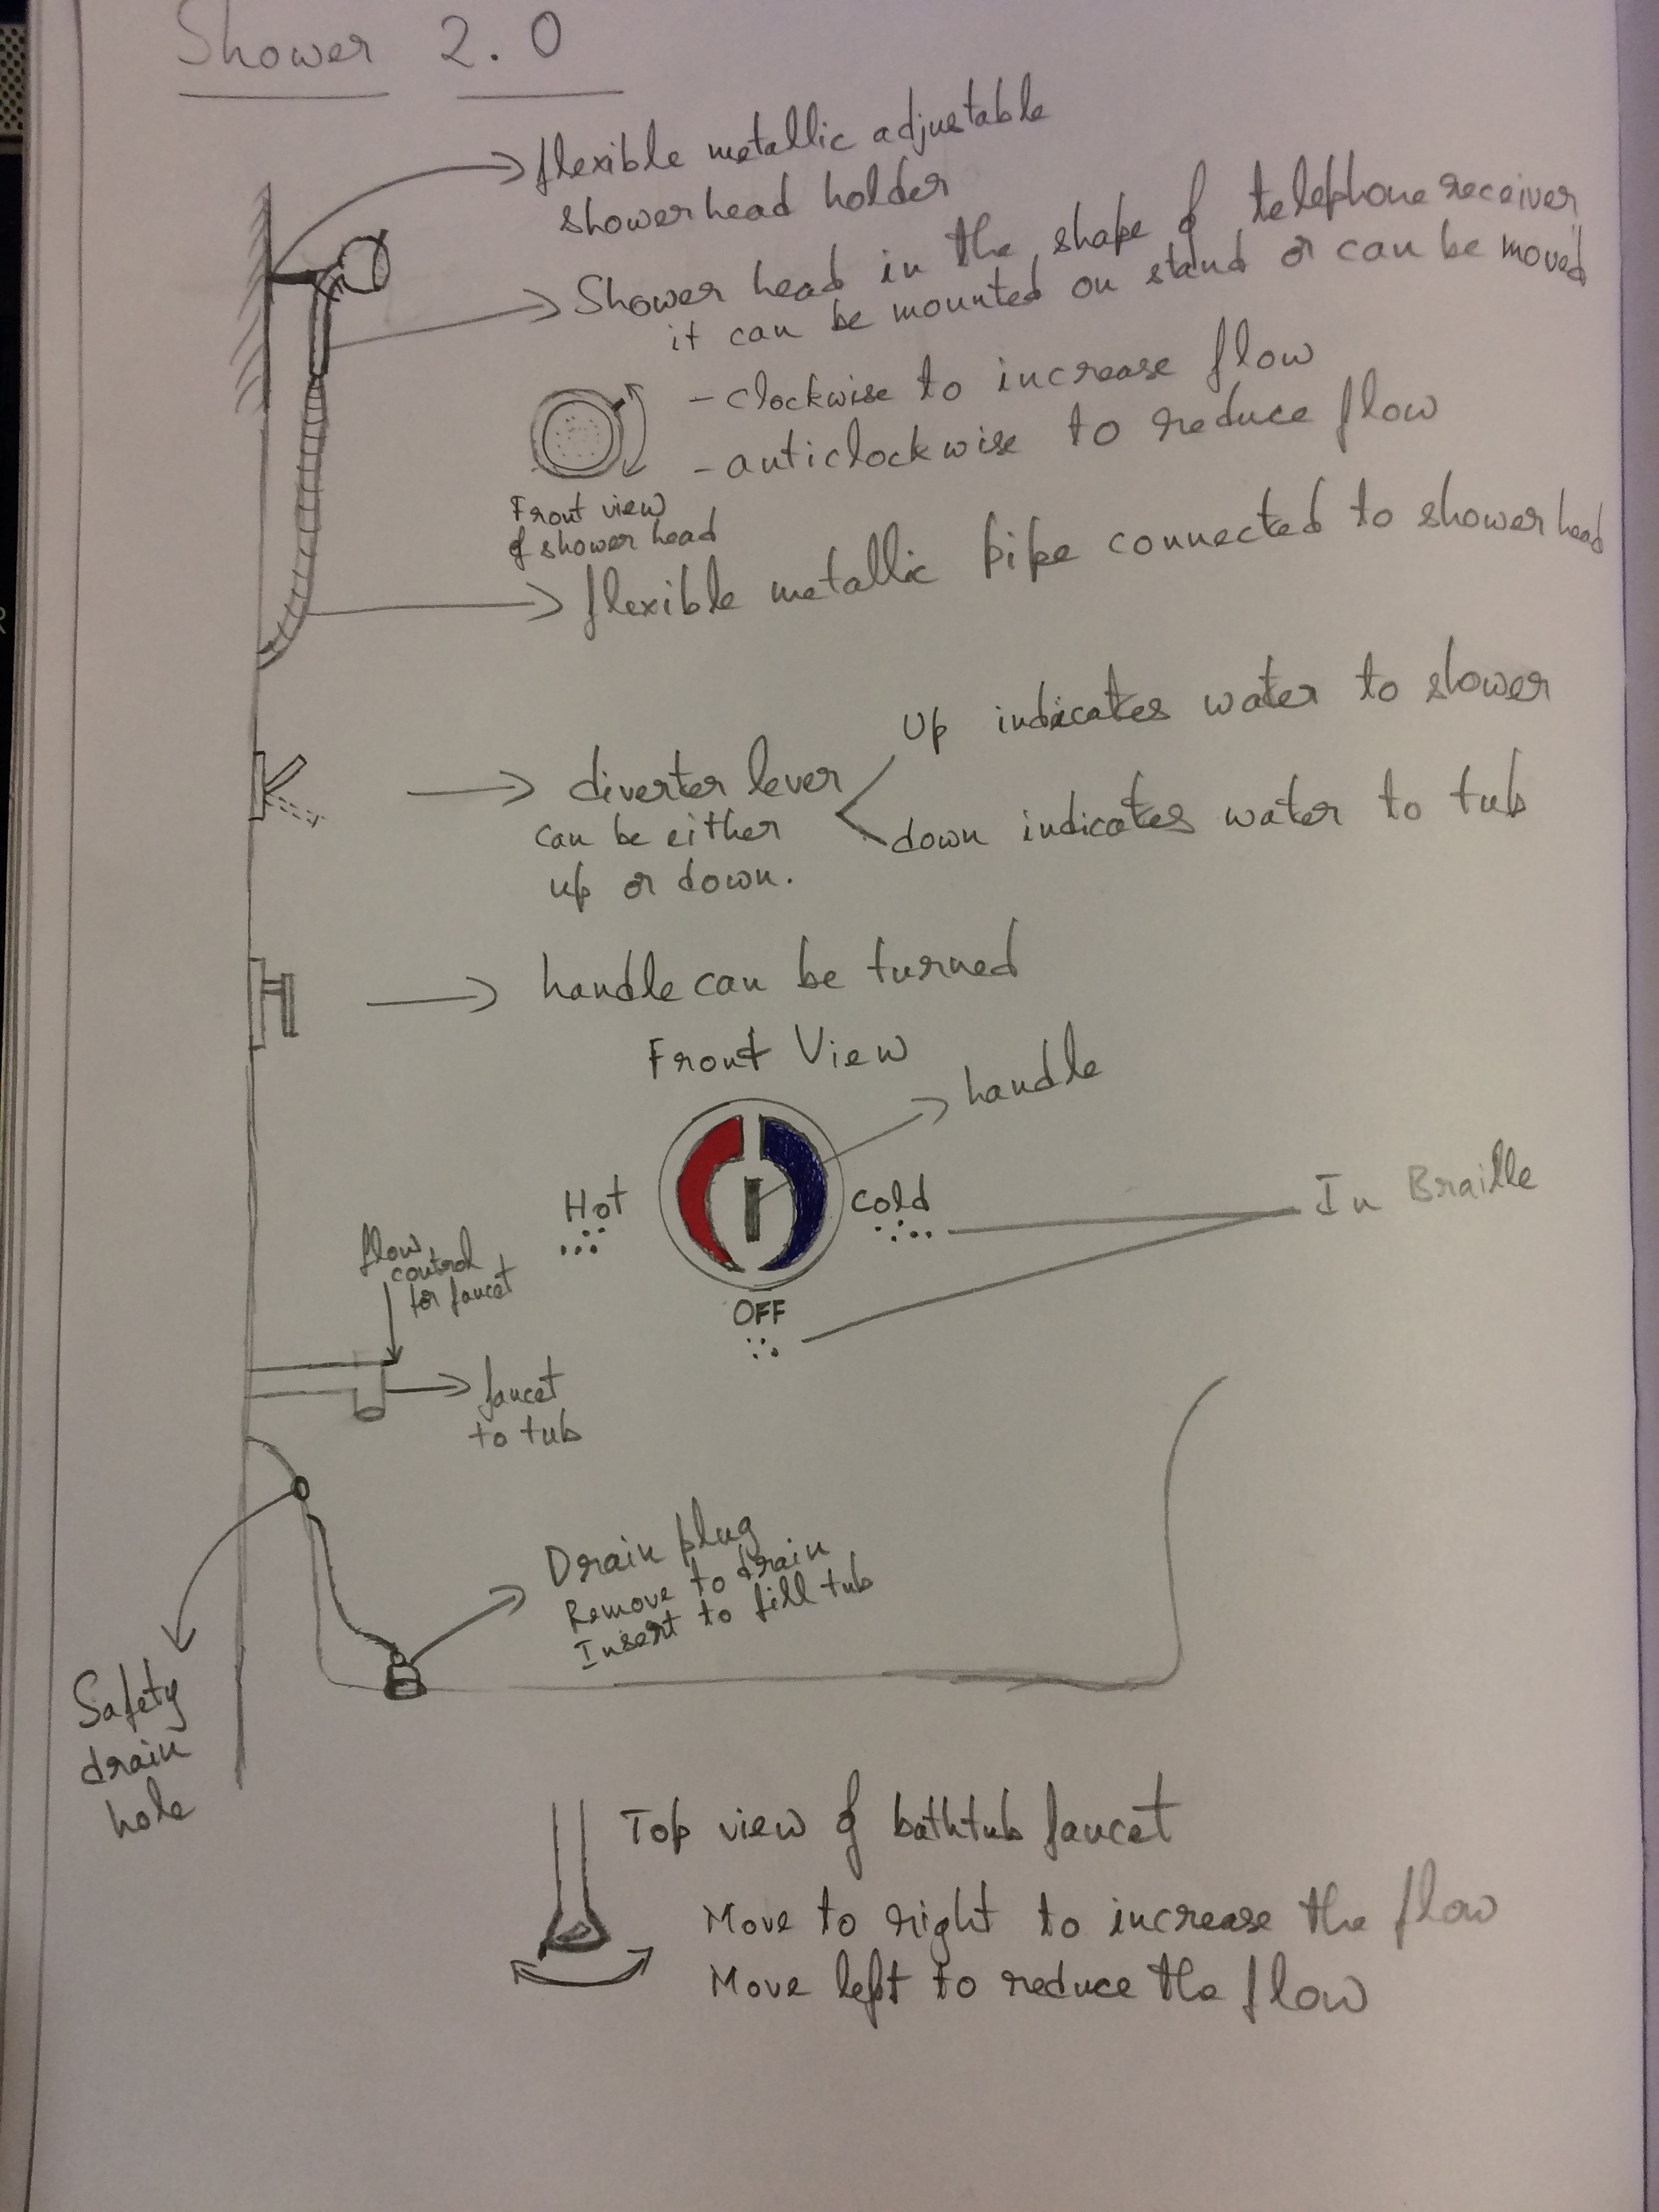 Shower 2.0
flexible metallic adjustable
showerhead holder
Shower head in the shape of telephone receiver
it can be mounted on stand or can be moved
- clockwise to increase flow
- anticlockwise to reduce flow
Front view
of shower head
flexible metallic pipe connected to shower head
Up indicates water to shower
diverter lever
can be either
up or down.
down indicates water to tub
handle can be turned
Front View
handle
Hot
Cold
In Braille
OFF
flow
control
for faucet
faucet
to tub
Drain plug
Remove to drain
Insert to fill tub
Safety
drain
hole
Top view of bathtub faucet
Move to right to increase the flow
Move left to reduce the flow